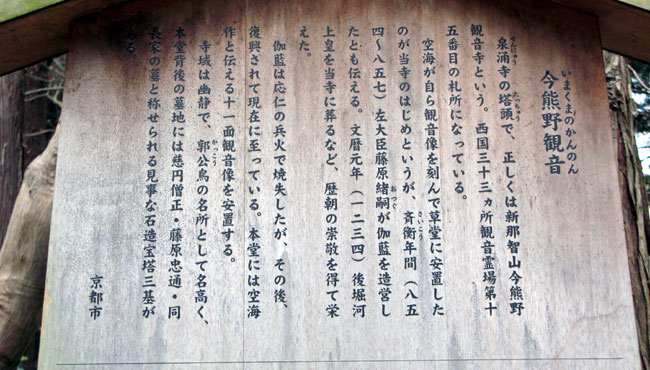 いまくまのかんのん
今熊野観音
せんにゅうじ たっちゅう
泉涌寺の塔頭で、正しくは新那智山今熊野
観音寺という。西国三十三ヵ所観音霊場第十
五番目の札所になっている。
空海が自ら観音像を刻んで草堂に安置した
さいこう
のが当寺のはじめというが、斉衡年間(八五
おつぐ
四〜八五七)左大臣藤原緒嗣が伽藍を造営し
たとも伝える。文暦元年(一二三四)後堀河
上皇を当寺に葬るなど、歴朝の崇敬を得て栄
えた。
伽藍は応仁の兵火で焼失したが、その後、
復興されて現在に至っている。本堂には空海
作と伝える十一面観音像を安置する。
かっこう
寺域は幽静で、郭公鳥の名所として名高く、
本堂背後の墓地には慈円僧正・藤原忠通・同
長家の墓と称せられる見事な石造宝塔三基が
ある。
京都市